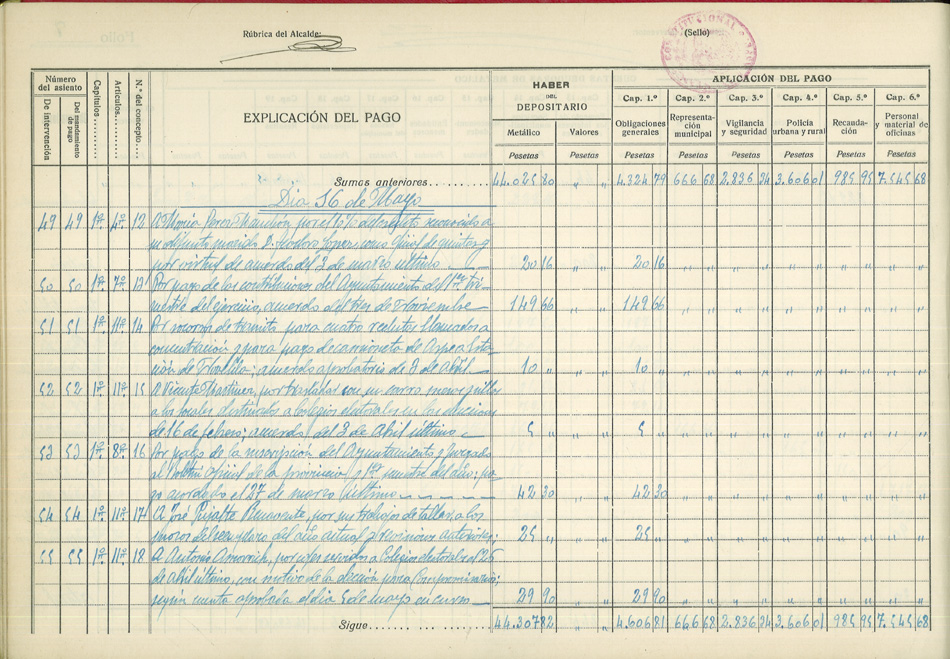 Rúbrica del Alcalde:
(Sello)
CONSTITUCIONAL
Número del asiento
De intervención
Del mandamiento de pago
Capítulos
Artículos
N.º del concepto
EXPLICACIÓN DEL PAGO
HABER DEL DEPOSITARIO
Metálico
Valores
Pesetas
Pesetas
APLICACIÓN DEL PAGO
Cap. 1.º Cap. 2.º Cap. 3.º Cap. 4.º Cap. 5.º Cap. 6.º
Obligaciones generales
Representación municipal
Vigilancia y seguridad
Policía urbana y rural
Recaudación
Personal y material de oficinas
Pesetas Pesetas Pesetas Pesetas Pesetas Pesetas
Sumas anteriores 44.025 80 " " 4.324 79 666 68 2.836 34 3.606 01 985 95 7.545 68
Dia 16 de Mayo
49 49 1º 4º 12 A María Perez por el
su difunto marido D. Isidoro Lopez, como oficial de quintas y
por virtud de acuerdo del 2 de marzo último 20 16 " " 20 16
50 50 1º 7º 13 Por pago de las contribuciones del Ayuntamiento del 1er tri-
mestre del ejercicio, acuerdo del tres de 149 66 " " 149 66
51 51 1º 11º 14 para cuatro reclutas llamados a
concentración y para pago de camioneta de Aspe a Esta-
ción de; acuerdo aprobatorio de 3 de abril 10 " " " 10 "
52 52 1º 11º 15 A Vicente Martinez, por trasladar con su carro
a los locales destinados a colegios electorales en las elecciones
de 16 de febrero; acuerdo del 3 de Abril último 5 " " " 5 "
53 53 1º 8º 16 Por pago de la suscripcion del Ayuntamiento y Juzgado
al Boletín oficial de la provincia y 1er semestre del año, pa-
go acordado el 27 de marzo último 42 30 " " 42 30
54 54 1º 11º 17 A José por sus trabajos de tallar a los
mozos del reemplazo del año actual y revisiones anteriores; 25 " " " 25 "
55 55 1º 11º 18 A Antonio por servidos a Colegios electorales el 26
de abril último, con motivo de la elección para Compromisarios;
según cuenta aprobada el dia 5 de mayo en curso 29 90 " " 29 90
Sigue 44.307 82 " " 4.606 81 666 68 2.836 34 3.606 01 985 95 7.545 68